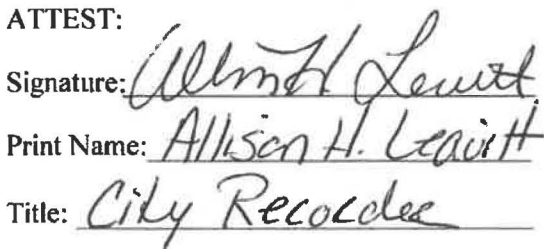 ATTEST:
Signature: Allison H Leavitt
Print Name: Allison H. Leavitt
Title: City Recorder